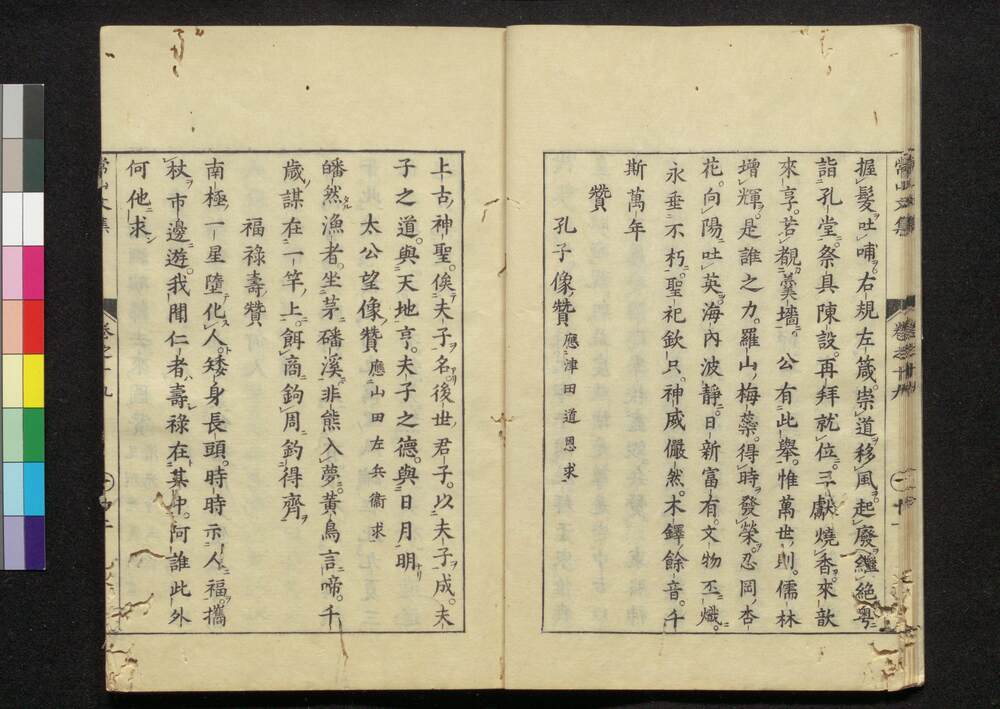 握髮吐哺右規左箴崇道移風起廢繼絕粤
詣孔堂祭具陳設再拜就位三獻燒香來歆
來享若覩羹墻 公有此舉惟萬世則儒林
增輝是誰之力羅山梅蘂得時發榮忍岡杏
花向陽吐英海內波靜日新富有文物丕熾
永垂不朽聖祀欽只神威儼然木鐸餘音千
斯萬年
贊
孔子像贊 應津田道恩求
上古神聖俟夫子名後世君子以夫子成夫
子之道與天地亨夫子之德與日月明
太公望像贊 應山田左兵衞求
皤然漁者坐茅磻溪非熊入夢黃鳥言啼千
歲謀在一竿上餌商鉤周釣得齊
福祿壽贊
南極一星墮化人矮身長頭時時示人福攜
杖市邊遊我聞仁者壽祿在其中阿誰此外
何他求